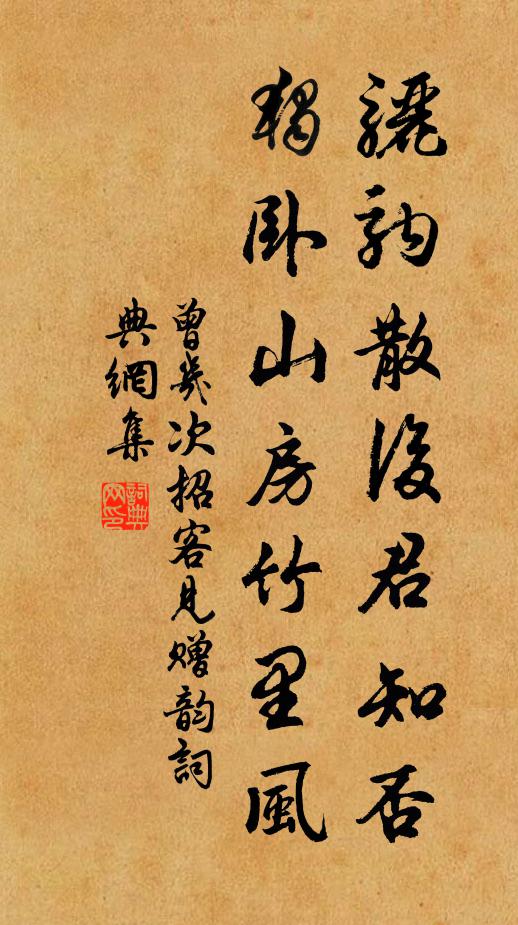 驪駒散後君知否
獨卧山房竹里風
曾幾次招客見贈韵詞
典網集
詞典网印